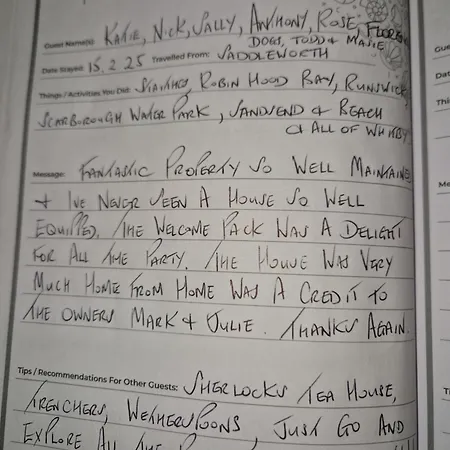 Guest Name(s): KATIE, NICK, SALLY, ANTHONY, ROSE, FLOREN
DOGS, TODD & MASIE
Date Stayed: 15.2.25 Travelled From: SADDLEWORTH
Things / Activities You Did: STAITHES, ROBIN HOOD BAY, RUNSWICK
SCARBOROUGH WATER PARK, SANDSEND & BEACH
& ALL OF WHITBY
Message: FANTASTIC PROPERTY SO WELL MAINTAINED
+ I'VE NEVER SEEN A HOUSE SO WELL
EQUIPPED. THE WELCOME PACK WAS A DELIGHT
FOR ALL THE PARTY. THE HOUSE WAS VERY
MUCH HOME FROM HOME WAS A CREDIT TO
THE OWNERS MARK & JULIE. THANKS AGAIN.
Tips / Recommendations For Other Guests: SHERLOCKS TEA HOUSE,
TRENCHERS, WETHERSPOONS, JUST GO AND
EXPLORE ALL THE
Gue
Dat
Thi
Me
Ti